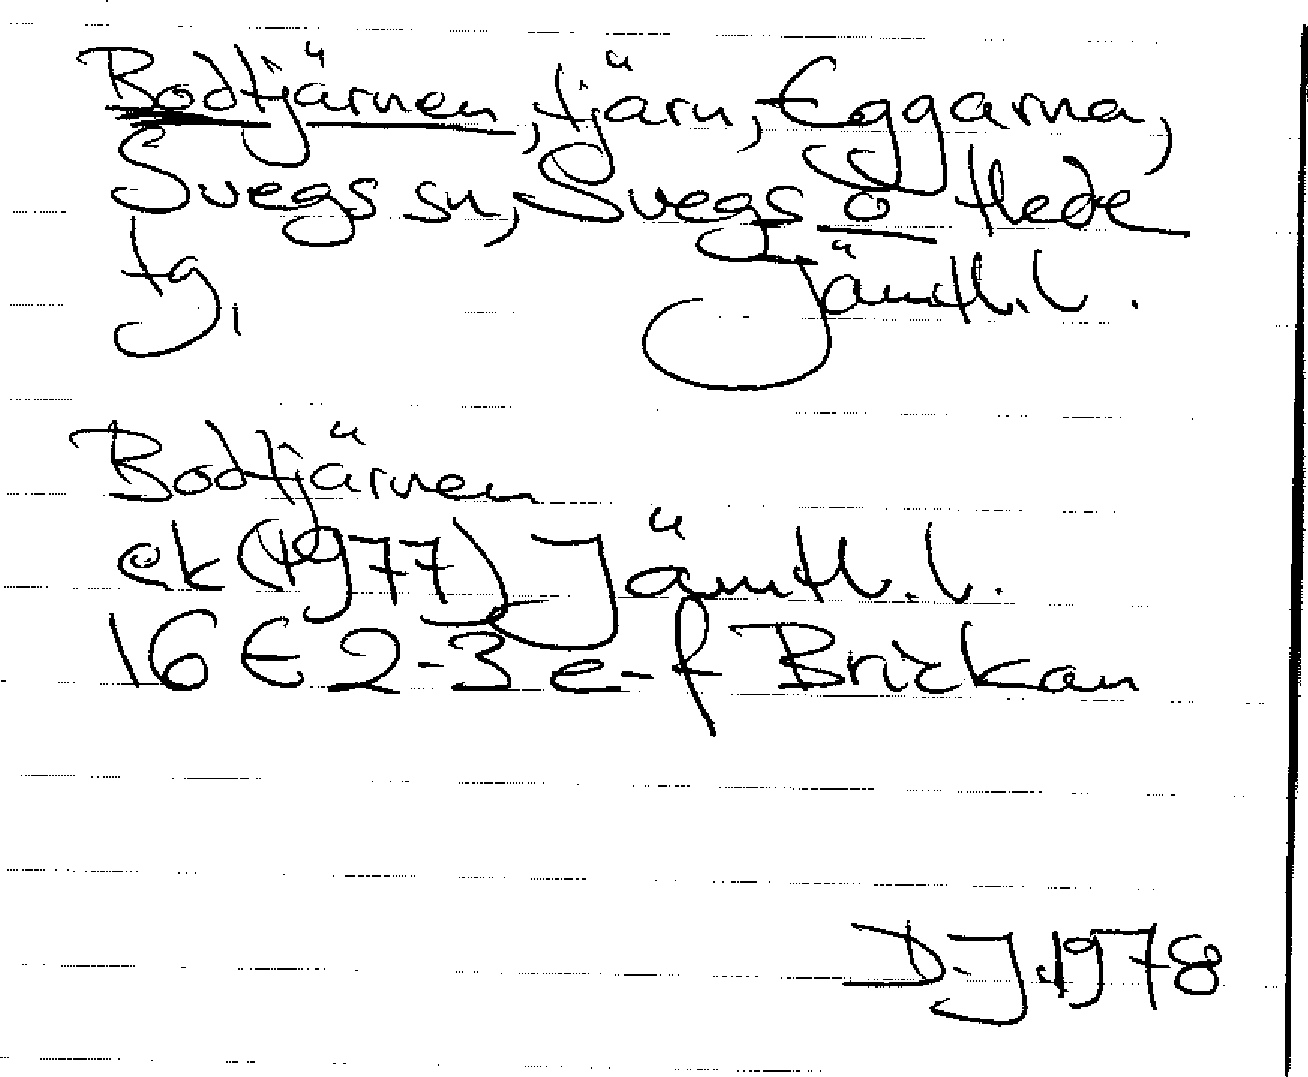 Bodtjärnen, tjärn, Eggarna,
Svegs sn, Svegs o Hede
tg, Jämtl. l.
Bodtjärnen
ek (1977) Jämtl. l.
16 E 2-3 e-f Brickan
D.J. 1978